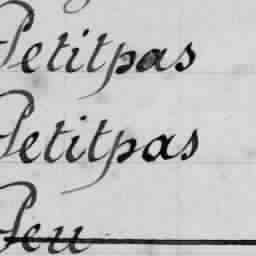 Petitpas
Petitpas
Peu